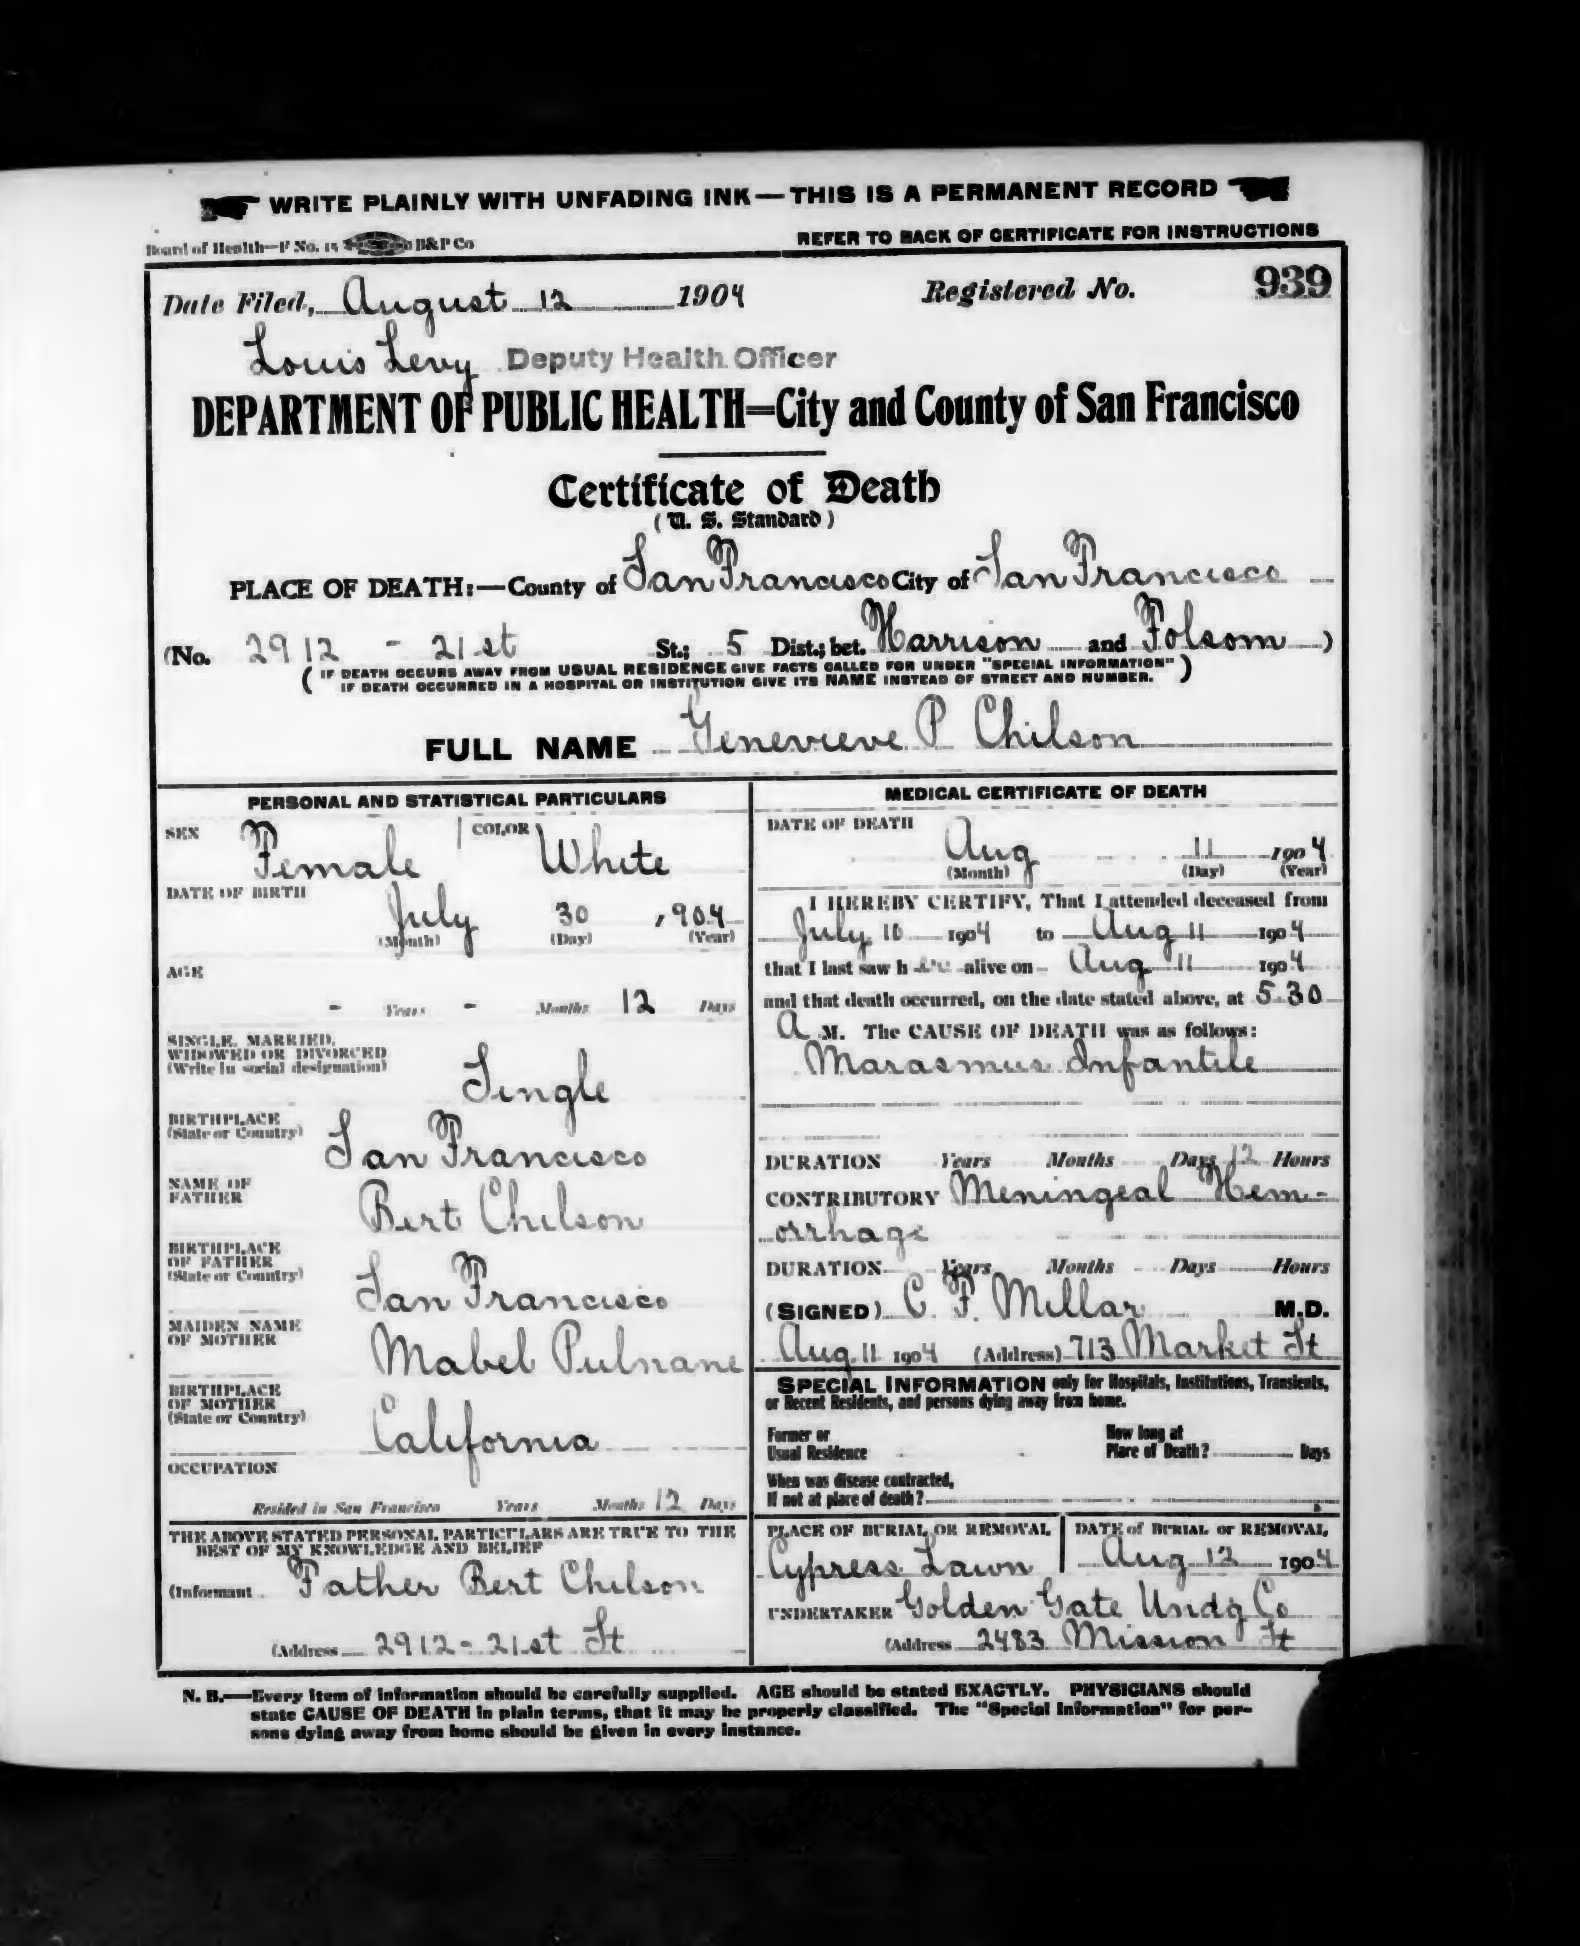 WRITE PLAINLY WITH UNFADING INK—THIS IS A PERMANENT RECORD
Board of Health—F No. 15 B&P Co
REFER TO BACK OF CERTIFICATE FOR INSTRUCTIONS
Date Filed, August 12 1904 Registered No. 939
Louis Levy Deputy Health Officer
DEPARTMENT OF PUBLIC HEALTH=City and County of San Francisco
Certificate of Death
(U. S. Standard)
PLACE OF DEATH:—County of San Francisco City of San Francisco
(No. 2912 - 21st St.; 5 Dist.; bet. Harrison and Folsom )
( IF DEATH OCCURS AWAY FROM USUAL RESIDENCE GIVE FACTS CALLED FOR UNDER "SPECIAL INFORMATION" )
IF DEATH OCCURRED IN A HOSPITAL OR INSTITUTION GIVE ITS NAME INSTEAD OF STREET AND NUMBER.
FULL NAME Genevieve P Chilson
PERSONAL AND STATISTICAL PARTICULARS
SEX Female COLOR White
DATE OF BIRTH
July 30 1904
(Month) (Day) (Year)
AGE
- Years - Months 12 Days
SINGLE, MARRIED,
WIDOWED OR DIVORCED
(Write in social designation)
Single
BIRTHPLACE
(State or Country)
San Francisco
NAME OF
FATHER
Bert Chilson
BIRTHPLACE
OF FATHER
(State or Country)
San Francisco
MAIDEN NAME
OF MOTHER
Mabel Pulnane
BIRTHPLACE
OF MOTHER
(State or Country)
California
OCCUPATION
Resided in San Francisco Years Months 12 Days
THE ABOVE STATED PERSONAL PARTICULARS ARE TRUE TO THE
BEST OF MY KNOWLEDGE AND BELIEF
(Informant Father Bert Chilson
(Address 2912 - 21st St
MEDICAL CERTIFICATE OF DEATH
DATE OF DEATH
Aug 11 1904
(Month) (Day) (Year)
I HEREBY CERTIFY, That I attended deceased from
July 10 1904 to Aug 11 1904
that I last saw her alive on Aug 11 1904
and that death occurred, on the date stated above, at 5.30
A M. The CAUSE OF DEATH was as follows:
Marasmus Infantile
DURATION Years Months Days 12 Hours
CONTRIBUTORY Meningeal Hem-
orrhage
DURATION Years Months Days Hours
(SIGNED) C. F. Millar M.D.
Aug 11 1904 (Address) 713 Market St
SPECIAL INFORMATION only for Hospitals, Institutions, Transients,
or Recent Residents, and persons dying away from home.
Former or
Usual Residence
How long at
Place of Death? Days
When was disease contracted,
If not at place of death?
PLACE OF BURIAL OR REMOVAL
Cypress Lawn
DATE of BURIAL or REMOVAL
Aug 12 1904
UNDERTAKER Golden Gate Undg Co
(Address 2483 Mission St
N. B.—Every item of information should be carefully supplied. AGE should be stated EXACTLY. PHYSICIANS should
state CAUSE OF DEATH in plain terms, that it may be properly classified. The "Special Information" for per-
sons dying away from home should be given in every instance.